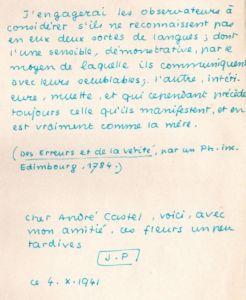 J'engagerai les observateurs à
considérer s'ils ne reconnaissent pas
en eux deux sortes de langues ; dont
l'une sensible, démonstrative, par le
moyen de laquelle ils communiquent
avec leurs semblables ; l'autre, intéri-
eure, muette, et qui cependant précède
toujours celle qu'ils manifestent, et en
est vraiment comme la mère.
(Des Erreurs et de la Vérité, par un Ph. inc.
Edimbourg, 1784.)
Cher André Castel, voici, avec
mon amitié, ces fleurs un peu
tardives
J.P
ce 4. X. 1941